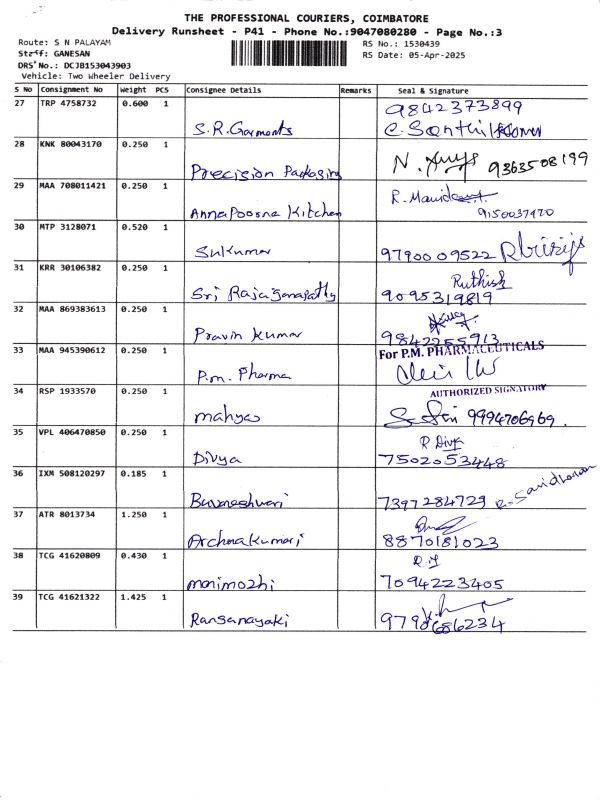 THE PROFESSIONAL COURIERS, COIMBATORE
Delivery Runsheet - P41 - Phone No.:9047080280 - Page No.:3
Route: S N PALAYAM
RS No.: 1530439
Staff: GANESAN
RS Date: 05-Apr-2025
DRS No.: DCJB153043903
Vehicle: Two Wheeler Delivery
S No Consignment No Weight PCS Consignee Details Remarks Seal & Signature
27 TRP 4758732 0.600 1 S.R.Garments 9842373899
28 KNK 80043170 0.250 1 Precision Packaging 9363508199
29 MAA 708011421 0.250 1 Annapoorna Kitchen 9150037970
30 MTP 3128071 0.520 1 Sukumar 9790009522
31 KRR 30106382 0.250 1 Sri Rajaganapathy Ruthish 9095319819
32 MAA 869383613 0.250 1 Pravin Kumar 9842255913
33 MAA 945390612 0.250 1 P.m. Pharma For P.M. PHARMACEUTICALS
AUTHORIZED SIGNATORY
34 RSP 1933570 0.250 1 mahya 9994706969.
35 VPL 406470850 0.250 1 Divya R. Divya 7502053448
36 IXM 508120297 0.185 1 Buvaneshwari 7397284729
37 ATR 8013734 1.250 1 Archnakumari 8870181023
38 TCG 41620809 0.430 1 manimozhi 7094223405
39 TCG 41621322 1.425 1 Ranganayaki 9790686234